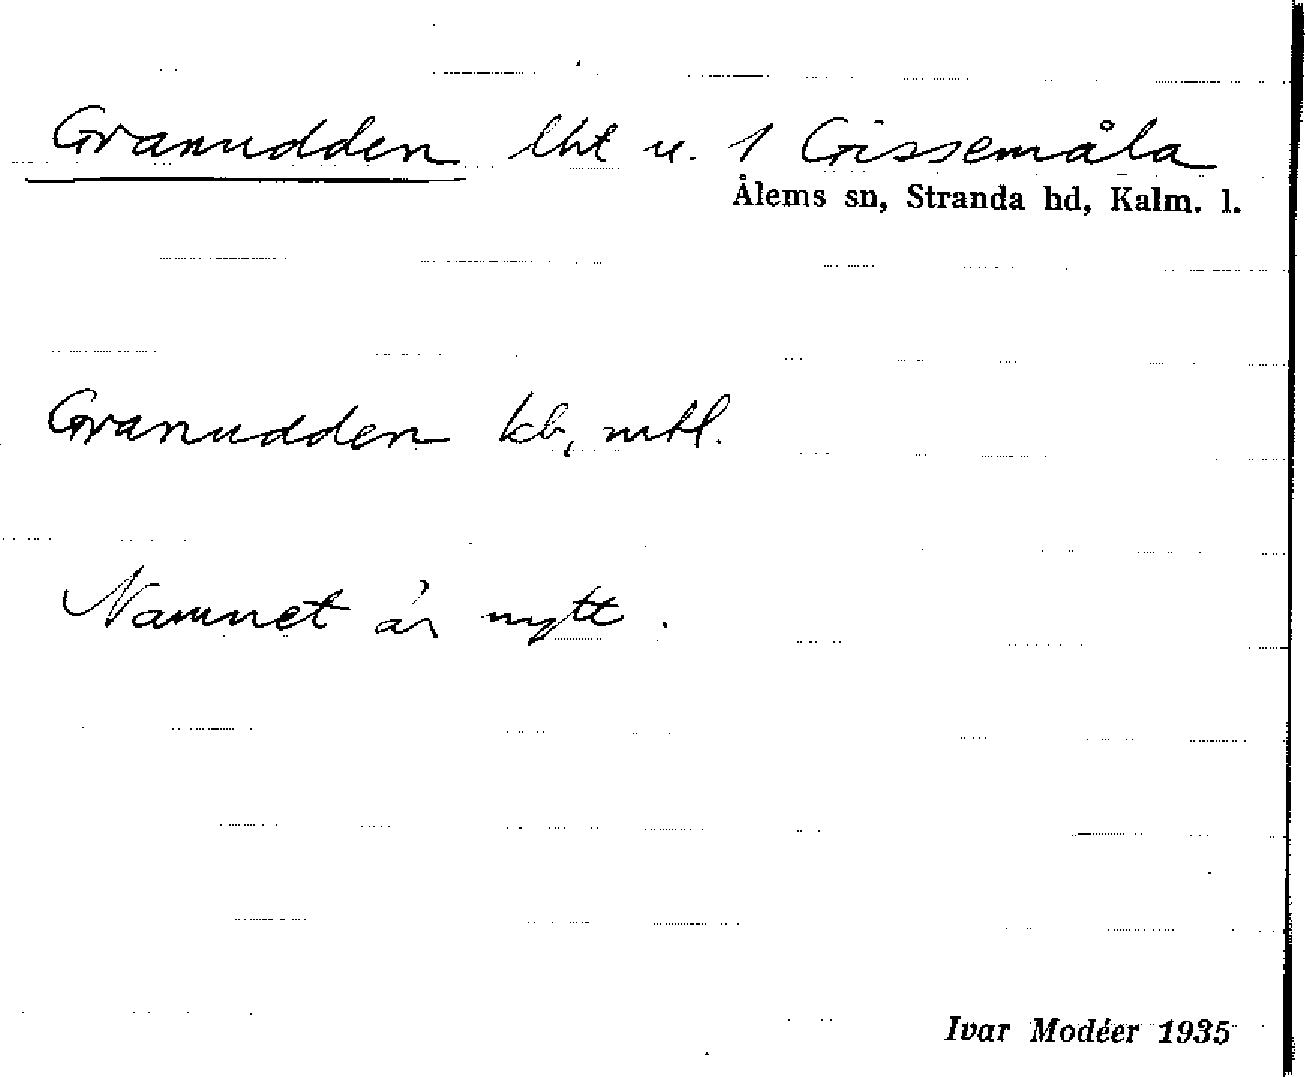 Granudden lht u. 1 Gissemåla
Ålems sn, Stranda hd, Kalm. l.
Granudden kb, mtl.
Namnet är nytt.
Ivar Modéer 1935